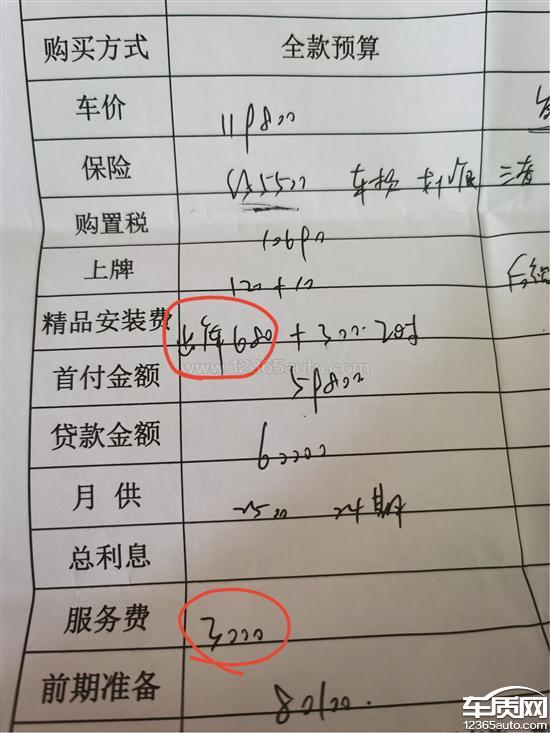 购买方式 全款预算
车价 119800
保险 5500 车损 三者
购置税 10690
上牌 120+10
精品安装费 出库680+3000
www.12365auto.com
首付金额 59800
贷款金额 60000
月供 2500 24期
总利息
服务费 3000
前期准备 80100.
车质网
12365auto.com